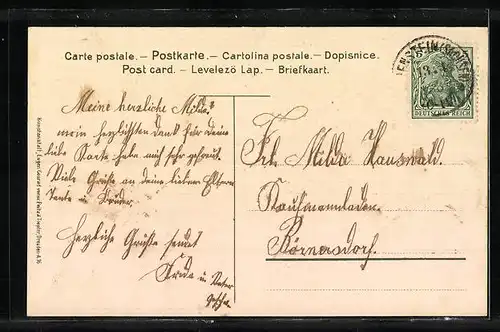 Carte postale.— Postkarte.— Cartolina postale.— Dopisnice.
Post card. — Levelezö Lap. — Briefkaart.
DEUTSCHES REICH
Meine herzliche Milda!
mein herzlichsten Dank für deine
liebe Karte habe mich sehr gefreut.
Viele Grüße an deine lieben Eltern
Tante u. Bruder.
Herzliche Grüße sendet
Frida u. Vater
Frl. Milda Hauswald.
Kaufmannladen.
Börnersdorf.